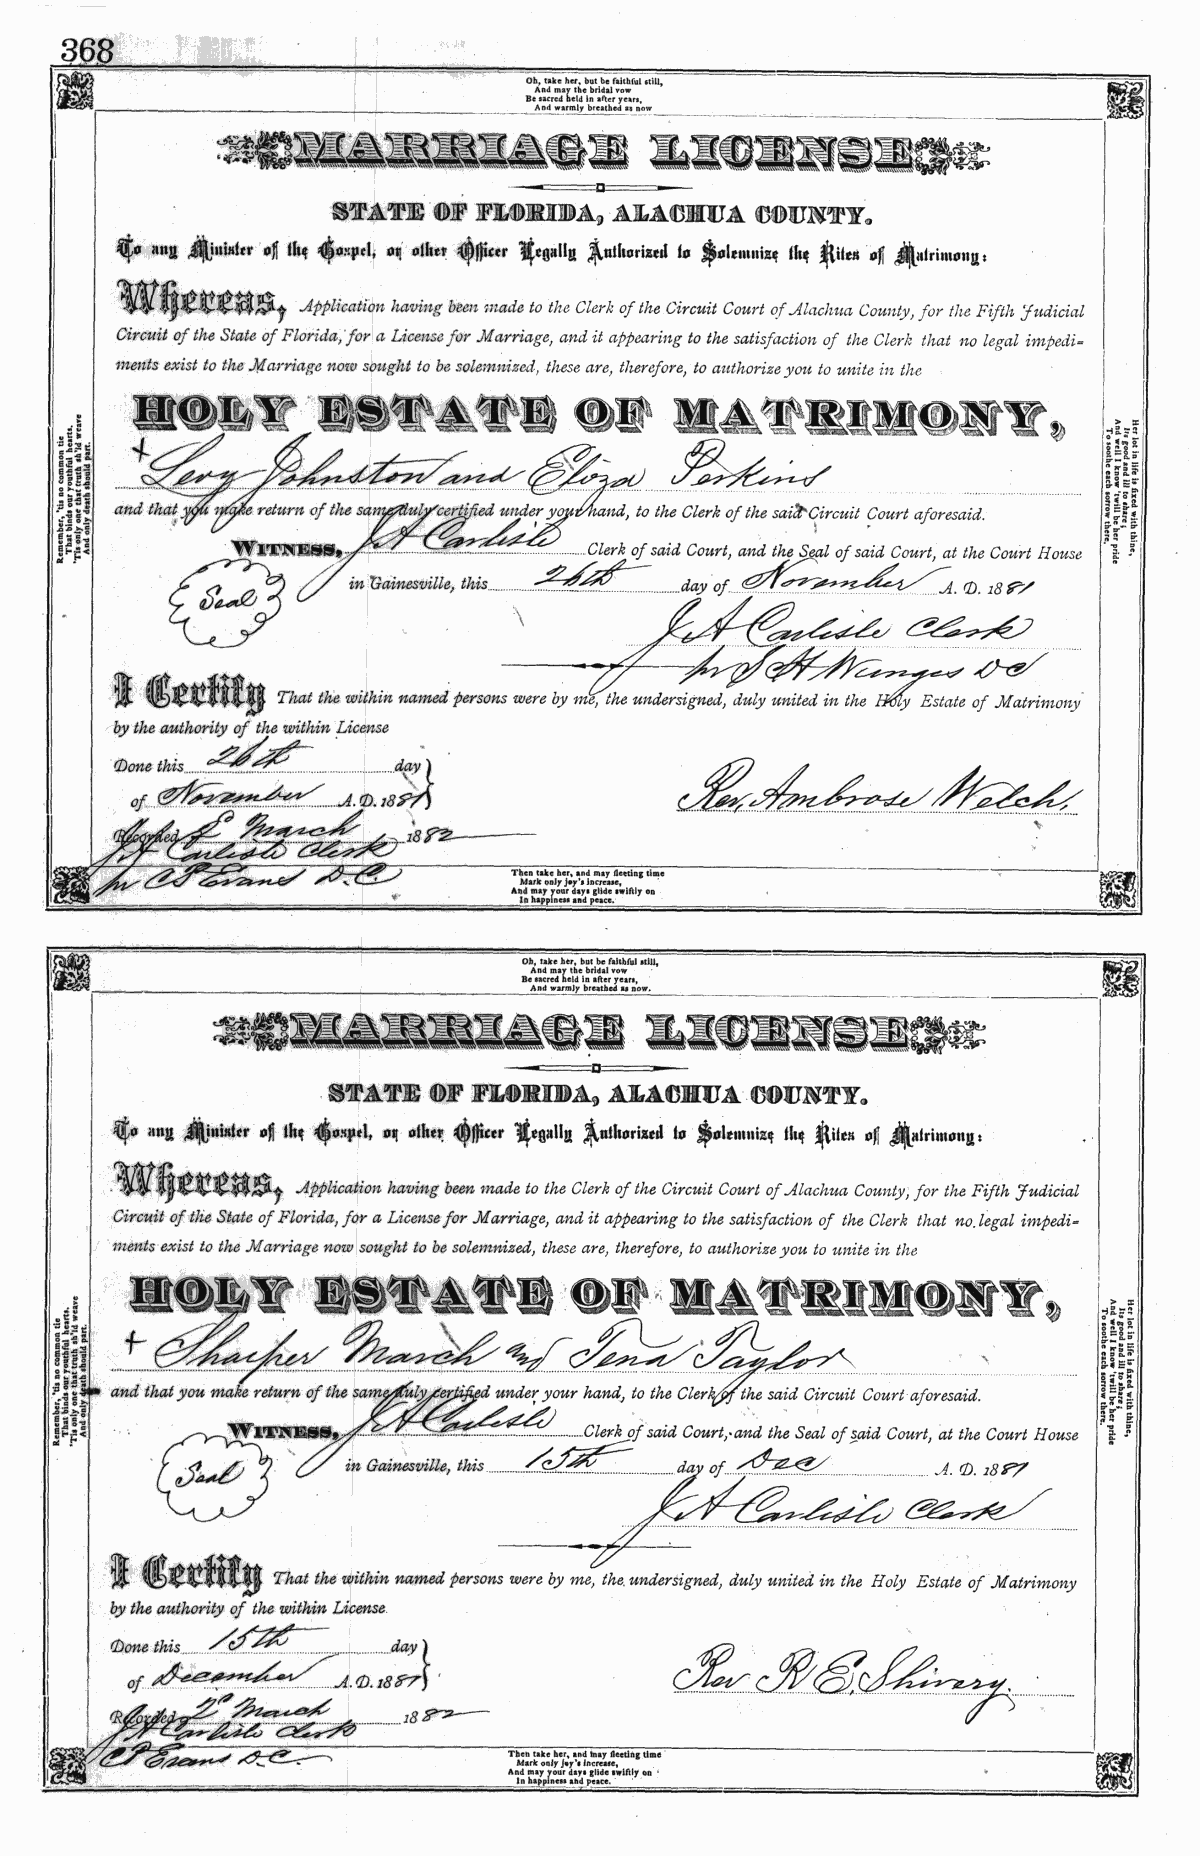 368
Oh, take her, but be faithful still,
And may the bridal vow
Be sacred held in after years,
And warmly breathed as now
MARRIAGE LICENSE
STATE OF FLORIDA, ALACHUA COUNTY.
To any Minister of the Gospel, or other Officer Legally Authorized to Solemnize the Rites of Matrimony:
Whereas, Application having been made to the Clerk of the Circuit Court of Alachua County, for the Fifth Judicial
Circuit of the State of Florida, for a License for Marriage, and it appearing to the satisfaction of the Clerk that no legal impedi=
ments exist to the Marriage now sought to be solemnized, these are, therefore, to authorize you to unite in the
HOLY ESTATE OF MATRIMONY,
+ Levy Johnston and Eliza Perkins
and that you make return of the same duly certified under your hand, to the Clerk of the said Circuit Court aforesaid.
WITNESS, J A Carlisle Clerk of said Court, and the Seal of said Court, at the Court House
Seal in Gainesville, this 26th day of November A. D. 1881
J A Carlisle Clerk
pr S H Wienges DC
I Certify That the within named persons were by me, the undersigned, duly united in the Holy Estate of Matrimony
by the authority of the within License
Done this 26th day
of November A. D. 1881
Rev. Ambrose Welch.
Recorded March 1882
J A Carlisle Clerk
pr C P Evans D.C.
Remember, 'tis no common tie
That binds our youthful hearts,
'Tis only one that truth sh'ld weave
And only death should part.
Her lot in life is fixed with thine,
Its good and ill to share;
And well I know 'twill be her pride
To soothe each sorrow there,
Then take her, and may fleeting time
Mark only joy's increase,
And may your days glide swiftly on
In happiness and peace.
Oh, take her, but be faithful still,
And may the bridal vow
Be sacred held in after years,
And warmly breathed as now.
MARRIAGE LICENSE
STATE OF FLORIDA, ALACHUA COUNTY.
To any Minister of the Gospel, or other Officer Legally Authorized to Solemnize the Rites of Matrimony:
Whereas, Application having been made to the Clerk of the Circuit Court of Alachua County, for the Fifth Judicial
Circuit of the State of Florida, for a License for Marriage, and it appearing to the satisfaction of the Clerk that no legal impedi=
ments exist to the Marriage now sought to be solemnized, these are, therefore, to authorize you to unite in the
HOLY ESTATE OF MATRIMONY,
+ Sharper March and Tena Taylor
and that you make return of the same duly certified under your hand, to the Clerk of the said Circuit Court aforesaid.
WITNESS, J A Carlisle Clerk of said Court, and the Seal of said Court, at the Court House
Seal in Gainesville, this 15th day of Dec A. D. 1881
J A Carlisle Clerk
I Certify That the within named persons were by me, the undersigned, duly united in the Holy Estate of Matrimony
by the authority of the within License
Done this 15th day
of December A. D. 1881
Rev R E. Shivery.
Recorded 2d March 1882
J A Carlisle Clerk
C P Evans D.C.
Remember, 'tis no common tie
That binds our youthful hearts,
'Tis only one that truth sh'ld weave
And only death should part.
Her lot in life is fixed with thine,
Its good and ill to share;
And well I know 'twill be her pride
To soothe each sorrow there.
Then take her, and may fleeting time
Mark only joy's increase,
And may your days glide swiftly on
In happiness and peace.